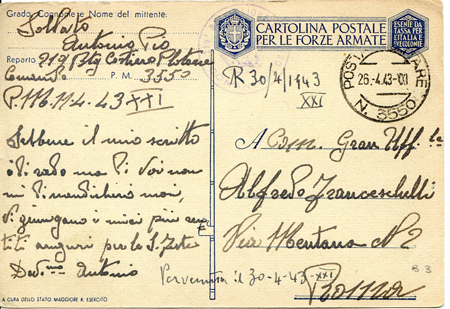 Grado, Cognome e Nome del mittente:
Soldato
Antonio Pio
Reparto 219 Btg Costiero Plotone
Comando P. M. 3550
P.M. 11.4.43 XXI
Sebbene il mio scritto
è di rado ma di Voi non
mi dimenticherò mai,
Vi giungano i miei più sen
titi auguri per la S. Feste
Dev.mo Antonio
A CURA DELLO STATO MAGGIORE R. ESERCITO
CARTOLINA POSTALE
PER LE FORZE ARMATE
ESENTE DA
TASSA PER
L'ITALIA E
R 30/4/1943
XXI
POSTA MILITARE
26.4.43
N. 3550
A Comm. Gran Uff.le
Alfredo Franceschelli
Via Mentana N 2
Pervenuta il 30-4-43-XXI
Roma
B 3